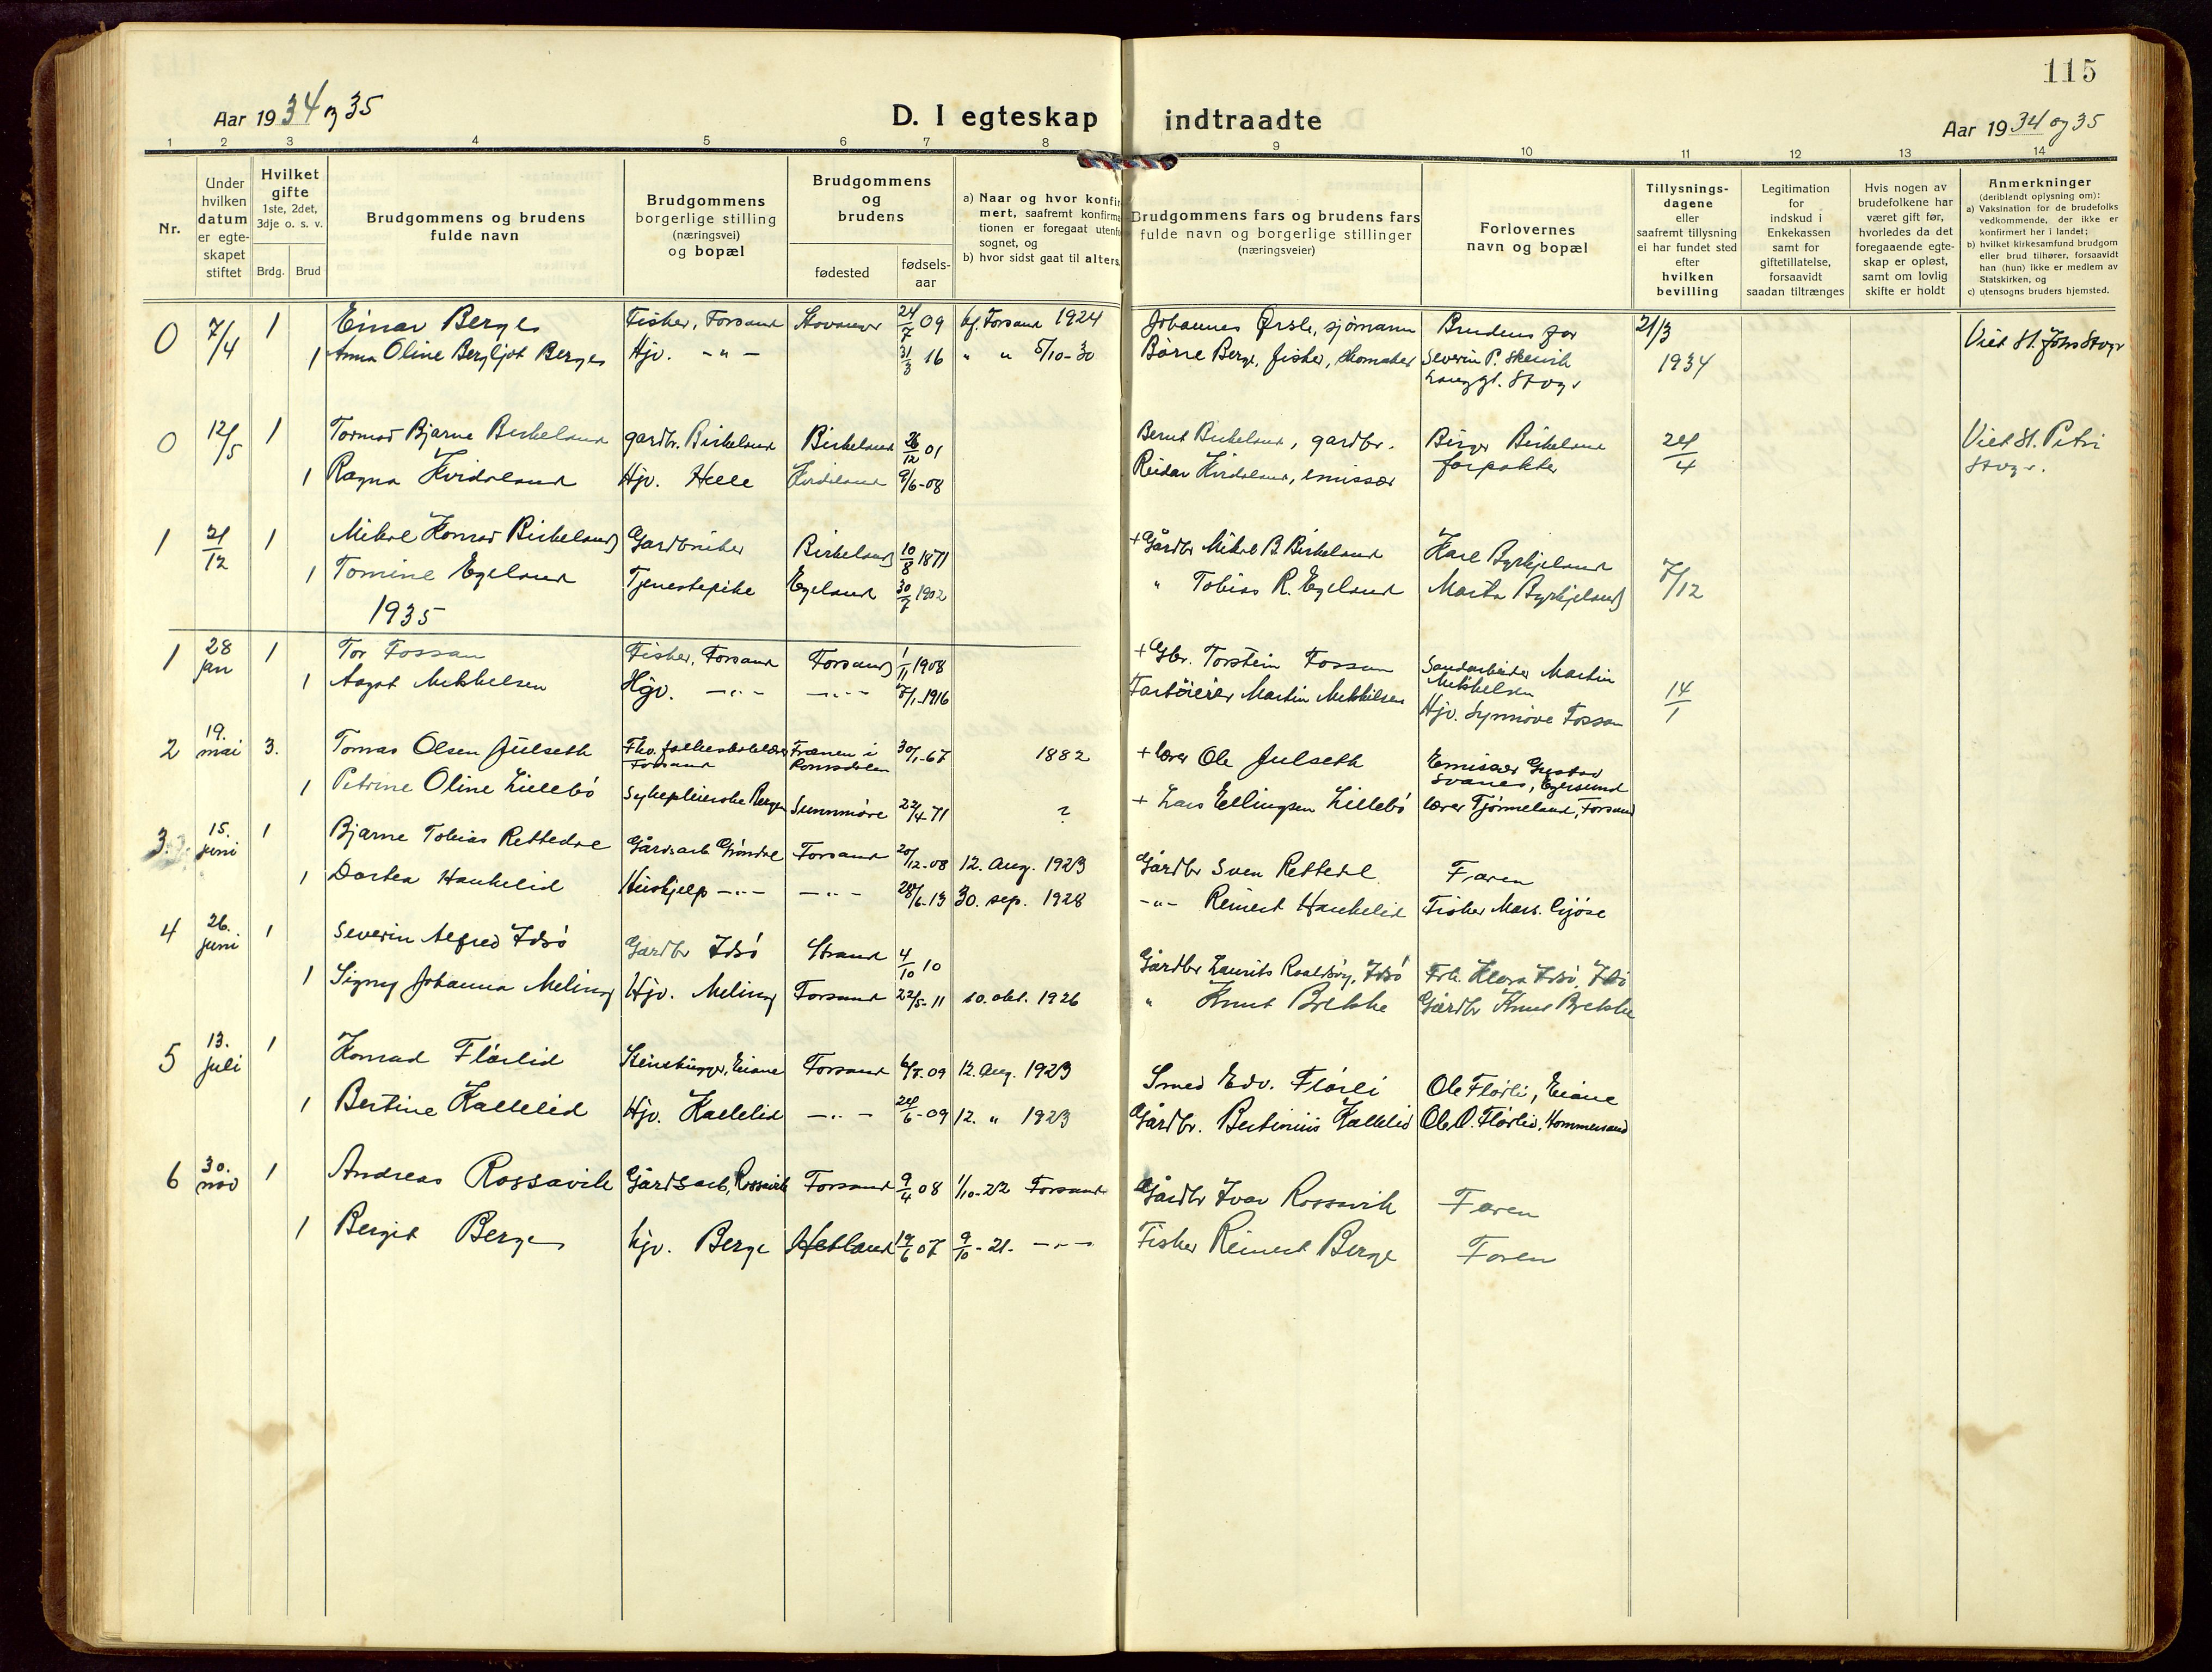 115
Aar 1934 og 35
D. I egteskap indtraadte
Aar 1934 og 35
1 2 3 4 5 6 7 8 9 10 11 12 13 14
Nr.
Under
hvilken
datum
er egte-
skapet
stiftet
Hvilket
gifte
1ste, 2det,
3dje o. s. v.
Brdg. Brud
Brudgommens og brudens
fulde navn
Brudgommens
borgerlige stilling
(næringsvei)
og bopæl
Brudgommens
og
brudens
fødested
fødsels-
aar
a) Naar og hvor konfir
mert, saafremt konfirma
tionen er foregaat utenfo
sognet, og
b) hvor sidst gaat til alters.
Brudgommens fars og brudens fars
fulde navn og borgerlige stillinger
(næringsveier)
Forlovernes
navn og bopæl
Tillysnings-
dagene
eller
saafremt tillysning
ei har fundet sted
efter
hvilken
bevilling
Legitimation
for
indskud i
Enkekassen
samt for
giftetillatelse,
forsaavidt
saadan tiltrænges
Hvis nogen av
brudefolkene har
været gift før,
hvorledes da det
foregaaende egte-
skap er opløst,
samt om lovlig
skifte er holdt
Anmerkninger
(deriblandt oplysning om):
a) Vaksination for de brudefolks
vedkommende, der ikke er
konfirmert her i landet;
b) hvilket kirkesamfund brudgom
eller brud tilhører, forsaavidt
han (hun) ikke er medlem av
Statskirken, og
c) utensogns bruders hjemsted.
0 7/4 1 Einar Berge Fisker, Forsand Stavanger 24/7 09 kf. Forsand 1924 Johannes Ørsle, sjømann Brudens far 21/3 Viet St. Johs Stvgr
1 Anna Oline Bergljot Berge Hjv. -"- 31/3 16 " " 5/10-30 Børre Berge, fisker, skomaker Severin P. Skeivik 1934
Langgt. Stvgr
0 12/5 1 Tormod Bjarne Birkeland gardbr. Birkeland Birkeland 26/12 01 Bernt Birkeland, gardbr. Birger Birkeland 24/4 Viet St. Petri
1 Ragna Kvidaland Hjv. Helle Kvidaland 9/6-08 Reidar Kvidaland, emissær forpakter Stvgr.
1 21/12 1 Mikal Konrad Birkeland Gardbruker Birkeland 10/8 1871 + Gårdbr Mikal B. Birkeland Karl Byrkjeland 7/12
1 Tomine Egeland Tjenestepike Egeland 30/7 1902 " Tobias R. Egeland Marta Byrkjeland
1935
1 28 jan 1 Tor Fossan Fisker, Forsand Forsand 1/11 1908 + Gbr. Torstein Fossan Sandarbeider Martin
Mikkelsen
1 Aagot Mikkelsen Hjv. -"- -"- 7/1-1916 Fartøieier Martin Mikkelsen Hjv. Synnøve Fossan 14/1
2 19. mai 3. Tomas Olsen Julseth Fhv. folkeskolelærer Forsand Frænen i Romsdalen 30/1-67 1882 + lærer Ole Julseth Emissær Gustav
Svanes, Egersund
1 Petrine Oline Lillebö Sykepleierske Bergen Sunnmöre 22/4 71 ? + Lars Ellingsen Lillebö lærer Tjörmeland, Forsand
3. 15. juni 1 Bjarne Tobias Rettedal Gårdsarb. Gröndal Forsand 20/12-08 12. Aug. 1923 Gårdbr Sven Rettedal Faren
1 Dortea Haukelid Huskjelp -"- -"- 28/6-13 30. sep. 1928 -"- Reinert Haukelid Fisker Mart. Gjöse
4 26. juni 1 Severin Alfred Idsö Gardbr Idsö Strand 4/10 10 Gårdbr Laurits Roaldsöy, Idsö Frk. Klara Idsö, Idsö
1 Signy Johanna Meling Hjv. Meling Forsand 22/5-11 10. okt. 1926 " Knut Brekke Gårdbr Knut Brekke
5 13. juli 1 Konrad Flörlid Stenhugger, Eiane Forsand 6/8.09 12. Aug. 1923 Smed Edv. Flörli Ole Flörli, Eiane
1 Bertine Kallelid Hjv. Kallelid -"- 24/6-09 12. " 1923 Gårdbr. Bertinius Kallelid Ole O. Flörlid, Hommersand
6 30. nov 1 Andreas Rossavik Gårdsarb, Rossavik Forsand 9/4 08 1/10-22 Forsand Gårdbr Ivar Rossavik Faren
1 Bergit Berge hjv. Berge Hetland 19/6 07 9/10-21. -"- Fisker Reinert Berge Faren